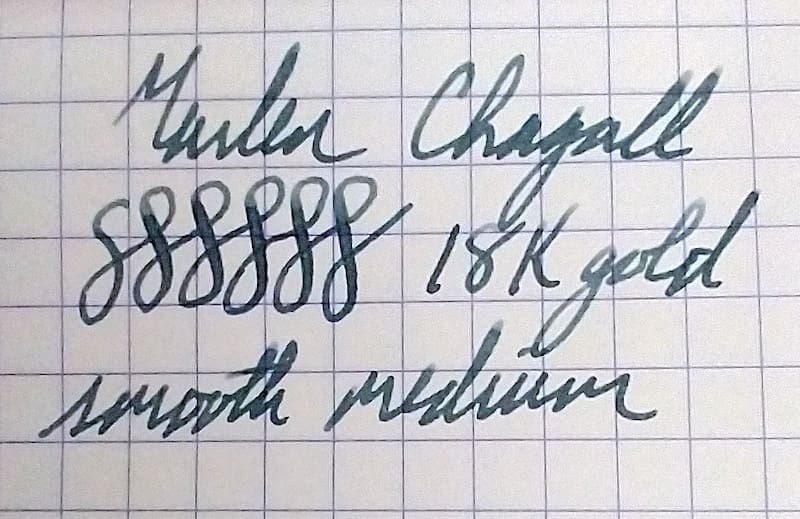 Marlen Chagall
888888 18K gold
smooth medium